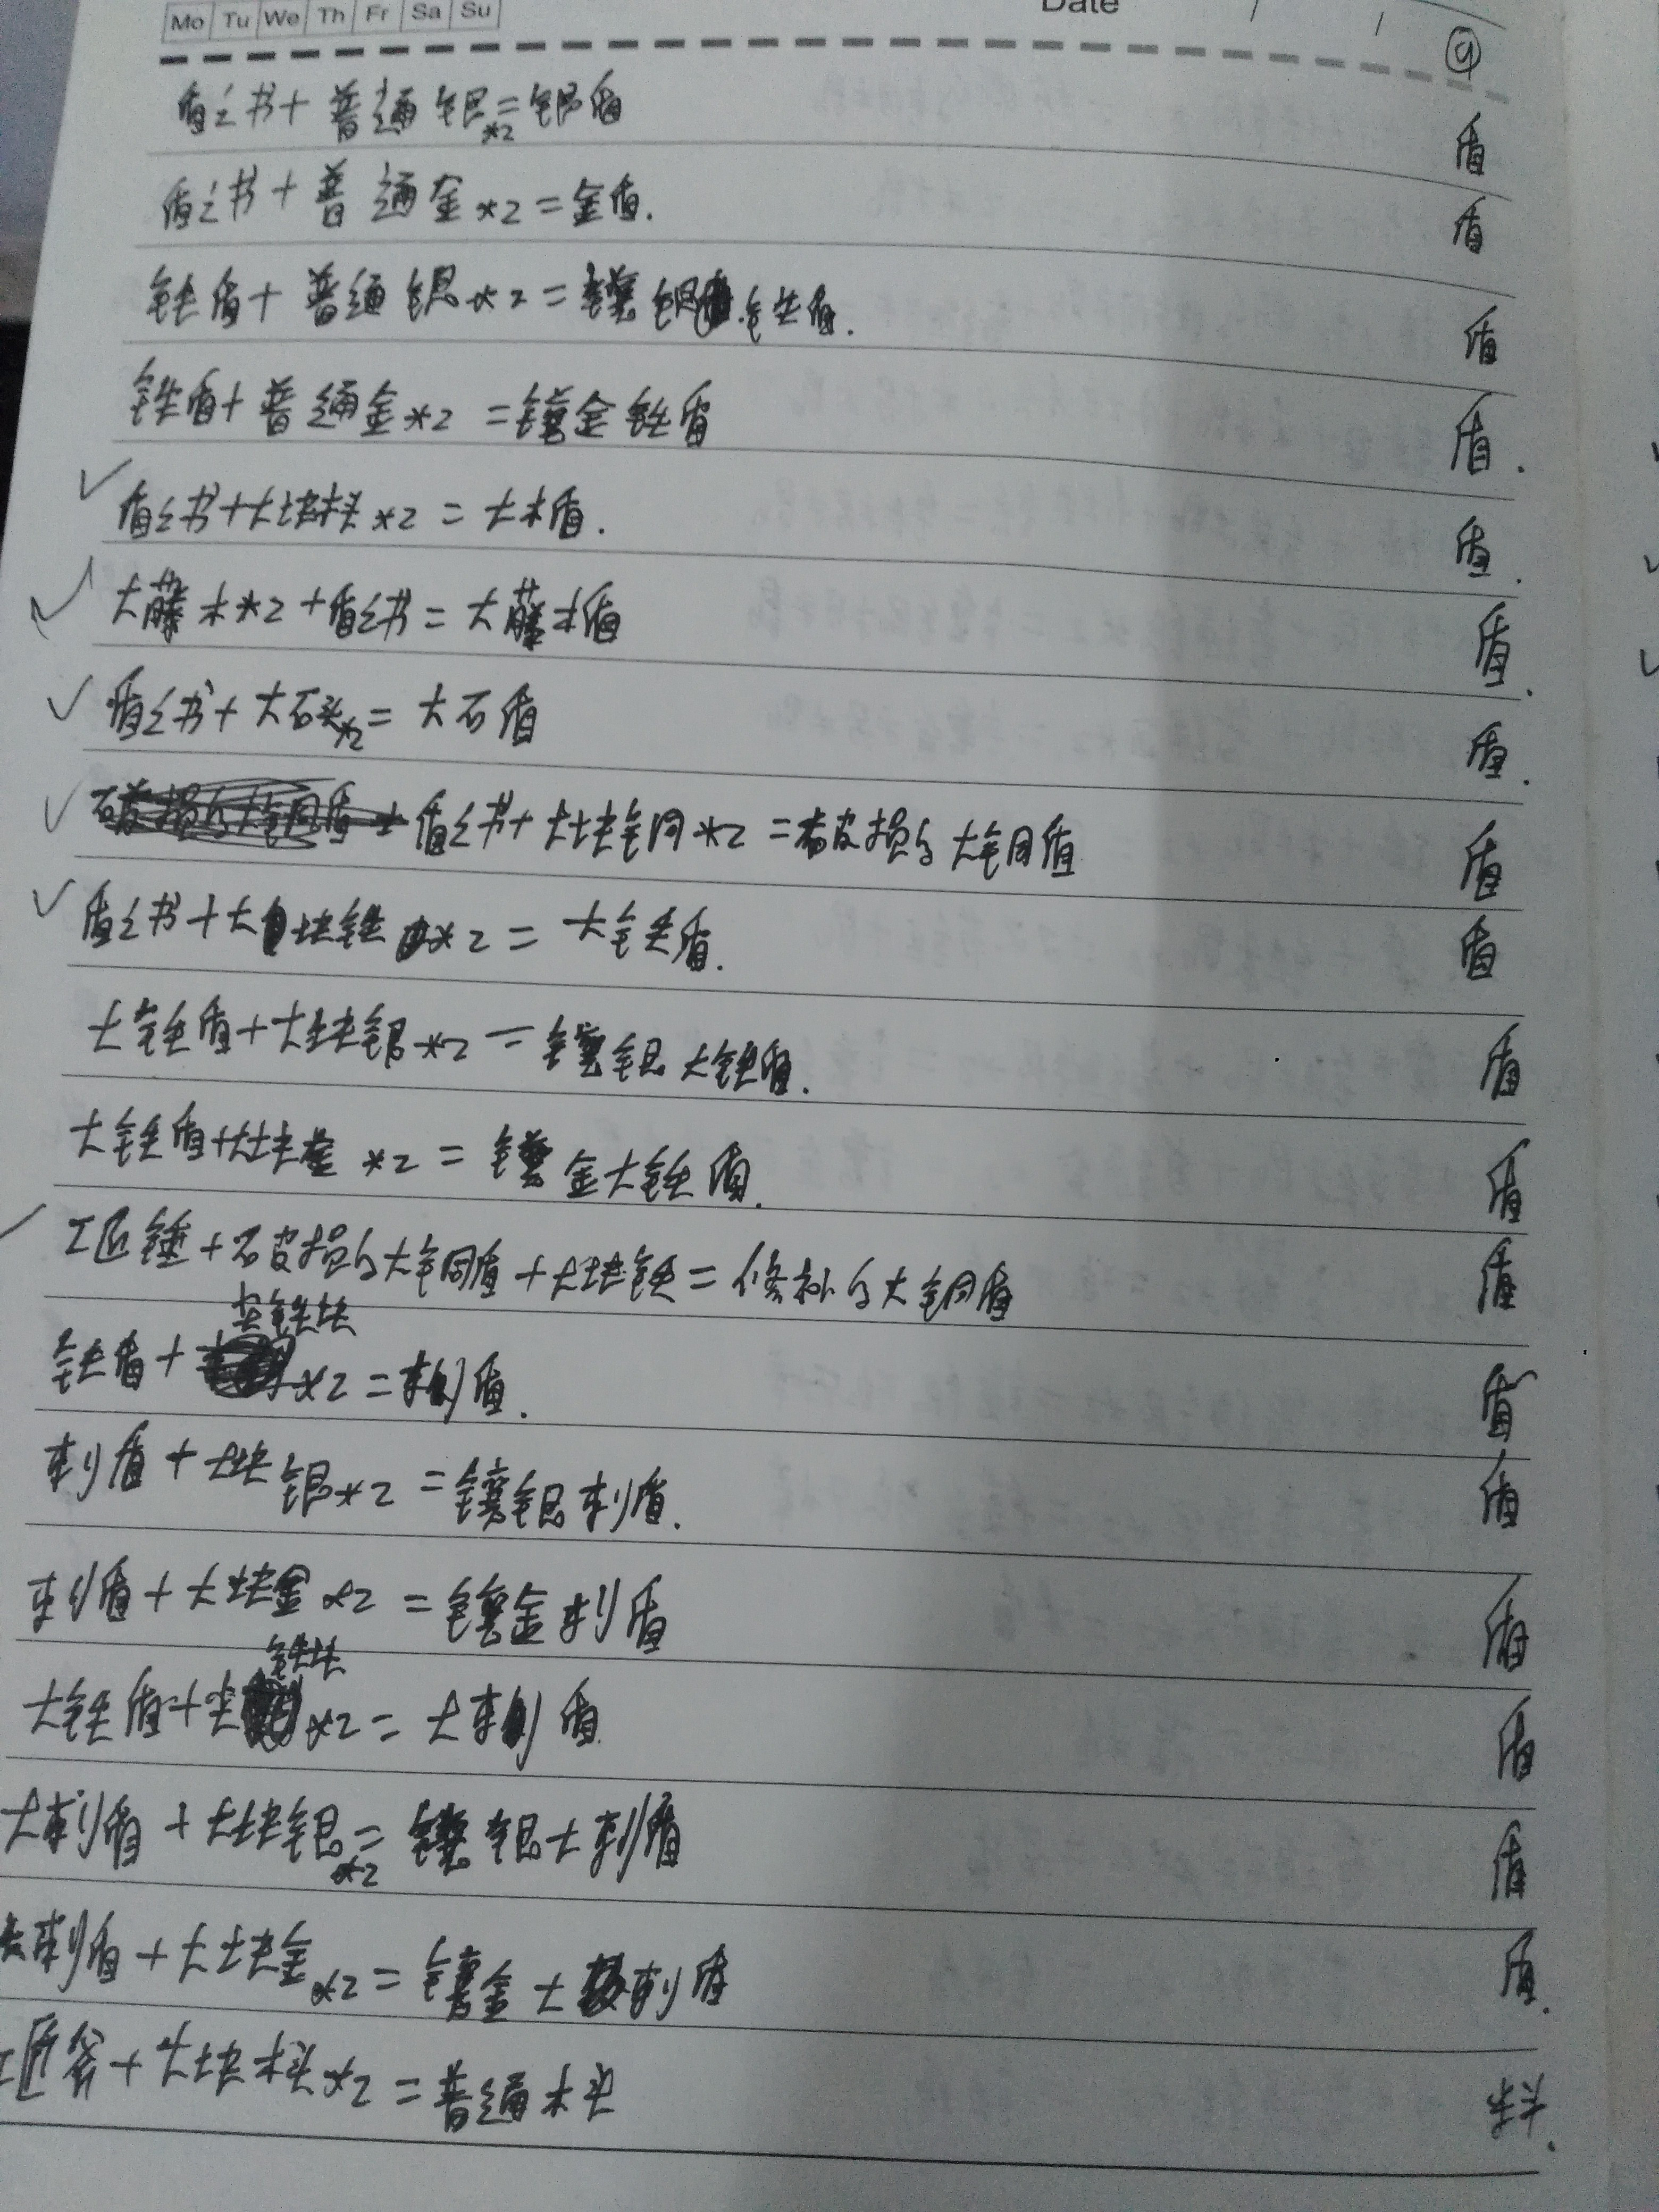 Mo Tu We Th Fr Sa Su Date / /
④
盾之书+普通银*2=银盾 盾
盾之书+普通金*2=金盾. 盾
铁盾+普通银*2=镶银铁盾. 盾
铁盾+普通金*2=镶金铁盾 盾.
✓盾之书+大块木头*2=大木盾. 盾.
✓大藤木*2+盾之书=大藤木盾 盾.
✓盾之书+大石头*2=大石盾 盾.
✓盾之书+大块铜*2=破损的大铜盾 盾
✓盾之书+大块铁*2=大铁盾. 盾
大铁盾+大块银*2=镶银大铁盾. 盾
大铁盾+大块金*2=镶金大铁盾. 盾
✓工匠锤+破损的大铜盾+大块铁=修补的大铜盾 盾
铁盾+尖铁块*2=刺盾. 盾
刺盾+大块银*2=镶银刺盾. 盾
刺盾+大块金*2=镶金刺盾 盾
大铁盾+尖铁块*2=大刺盾 盾
大刺盾+大块银*2=镶银大刺盾 盾
大刺盾+大块金*2=镶金大刺盾 盾.
工匠斧+大块木头*2=普通木头 料.